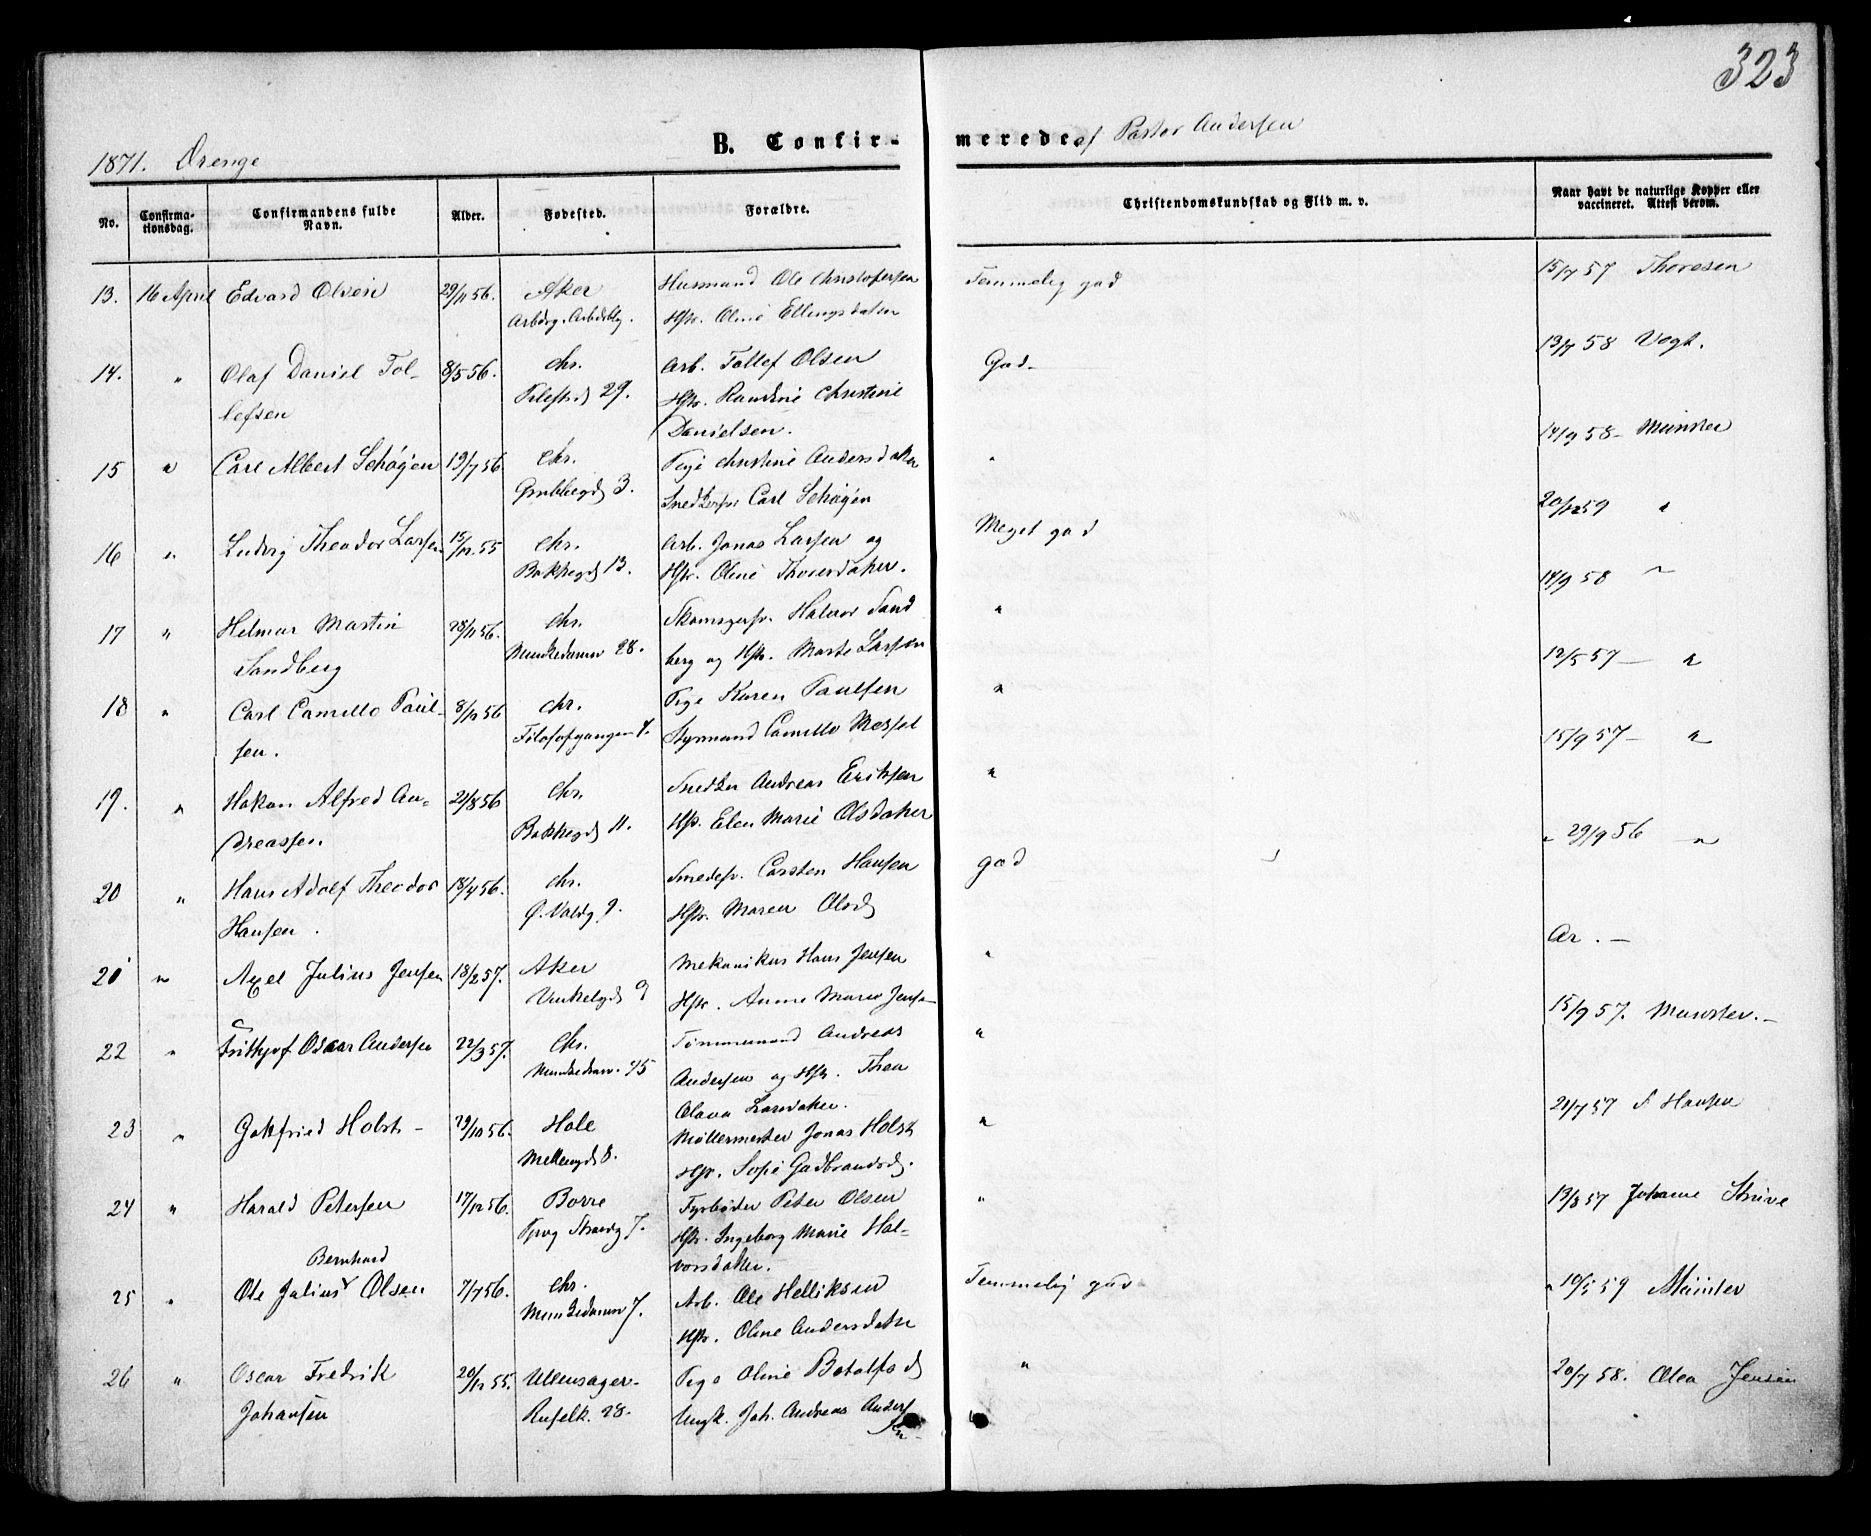 323
1871. Drenge
B. Confir-
merede af Pastor Andersen
No.
Confirma-
tionsdag.
Confirmandens fulde
Navn.
Alder.
Fødested.
Forældre.
Christendomskundskab og Flid m. v.
Naar havt de naturlige Kopper eller
vaccineret. Attest derom.
13. 16 April Edvard Olsen 29/11 56. Aker Husmand Ole Christofersen Temmelig god 15/7 57 Thoresen
Hstr. Oline Ellingsdatter
14. " Olaf Daniel Tol- 8/5 56. Chr. Arb. Tollef Olsen God 13/7 58 Vogt.
lefsen 29. Hstr. Randine Christine
Danielsen.
15 " Carl Albert Schøgen 19/7 56 Chr. Pige Christine Andersdatter " 14/9 58 - Münster
Grubbegd 3. Carl Schøgen
16 " Ludvig Theodor Larsen 15/12 55 Chr. Arb. Jonas Larsen og Meget god 20/12 59 "
Bakkegd 13. Hstr. Oline
14/9 58 "
17 " Helmar Martin 28/11 56. Chr. Halvor Sand "
Sandberg Munkedamm 28. berg og Hstr. Marte Larsen 12/5 57 — "
18 " Carl Camillo Paul- 8/12 56 Chr. Pige Karen Paulsen "
sen. Filosofgangen Styrmand Camillo 15/9 57 — "
19. " Hakon Alfred An- 21/8 56 Chr. Snedker Andreas Eriksen "
dreassen. Bakkegd 11. Hstr. Elen Marie Olsdatter " 29/9 56 — "
20 " Hans Adolf Theodor 18/4 56. Chr. Smedesv. Carsten Hansen god
Hansen. Ø. Voldg 9. Hstr. Maren Olsd Ar. —
21 " Axel Julius Jensen 18/2 57. Aker Mekanikus Hans Jensen "
Vinkelgd 9 Hstr. Anne Marie 15/9 57. Münster. —
22 " Frithjof Oscar Andersen 22/3 57. Chr. Tømmermand Andreas "
Andersen og Hstr. Thea
Olava Larsdatter. 21/7 57 Hansen
23 " Gotfried Holst - 29/10 56. Hole Møllermester Jonas Holst "
Møllergd 8. Hstr. Sofie Gudbrandsd.
24 " Harald Petersen 17/12 56. Borre Fyrbøder Peter Olsen " 13/8 57 Johanne Struve
7. Hstr. Ingeborg Marie Hal-
vorsdatter.
Bernhard
25 " Ole Julius Olsen 7/7 56. Chr. Arb. Ole Helliksen Temmelig god " 10/5 59 Münster
Munkedammv 7. Hstr. Oline Andersdatter
26 " Oscar Fredrik 20/12 55. Ullensager- Pige Oline " 20/7 58. Olea Jensen
Johansen Rufelk. 28. Ungk. Joh. Andreas Anders
sen